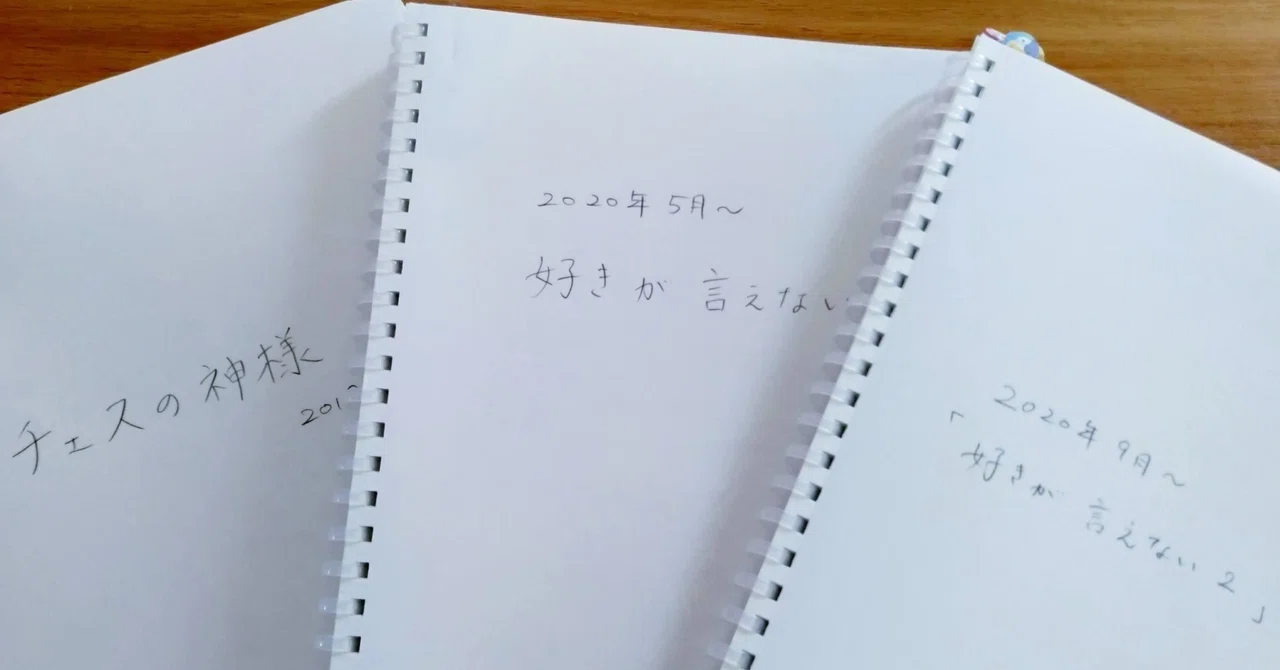 チェスの神様
201
2020年5月～
好きが言えない
2020年9月～
「好きが言えない2」